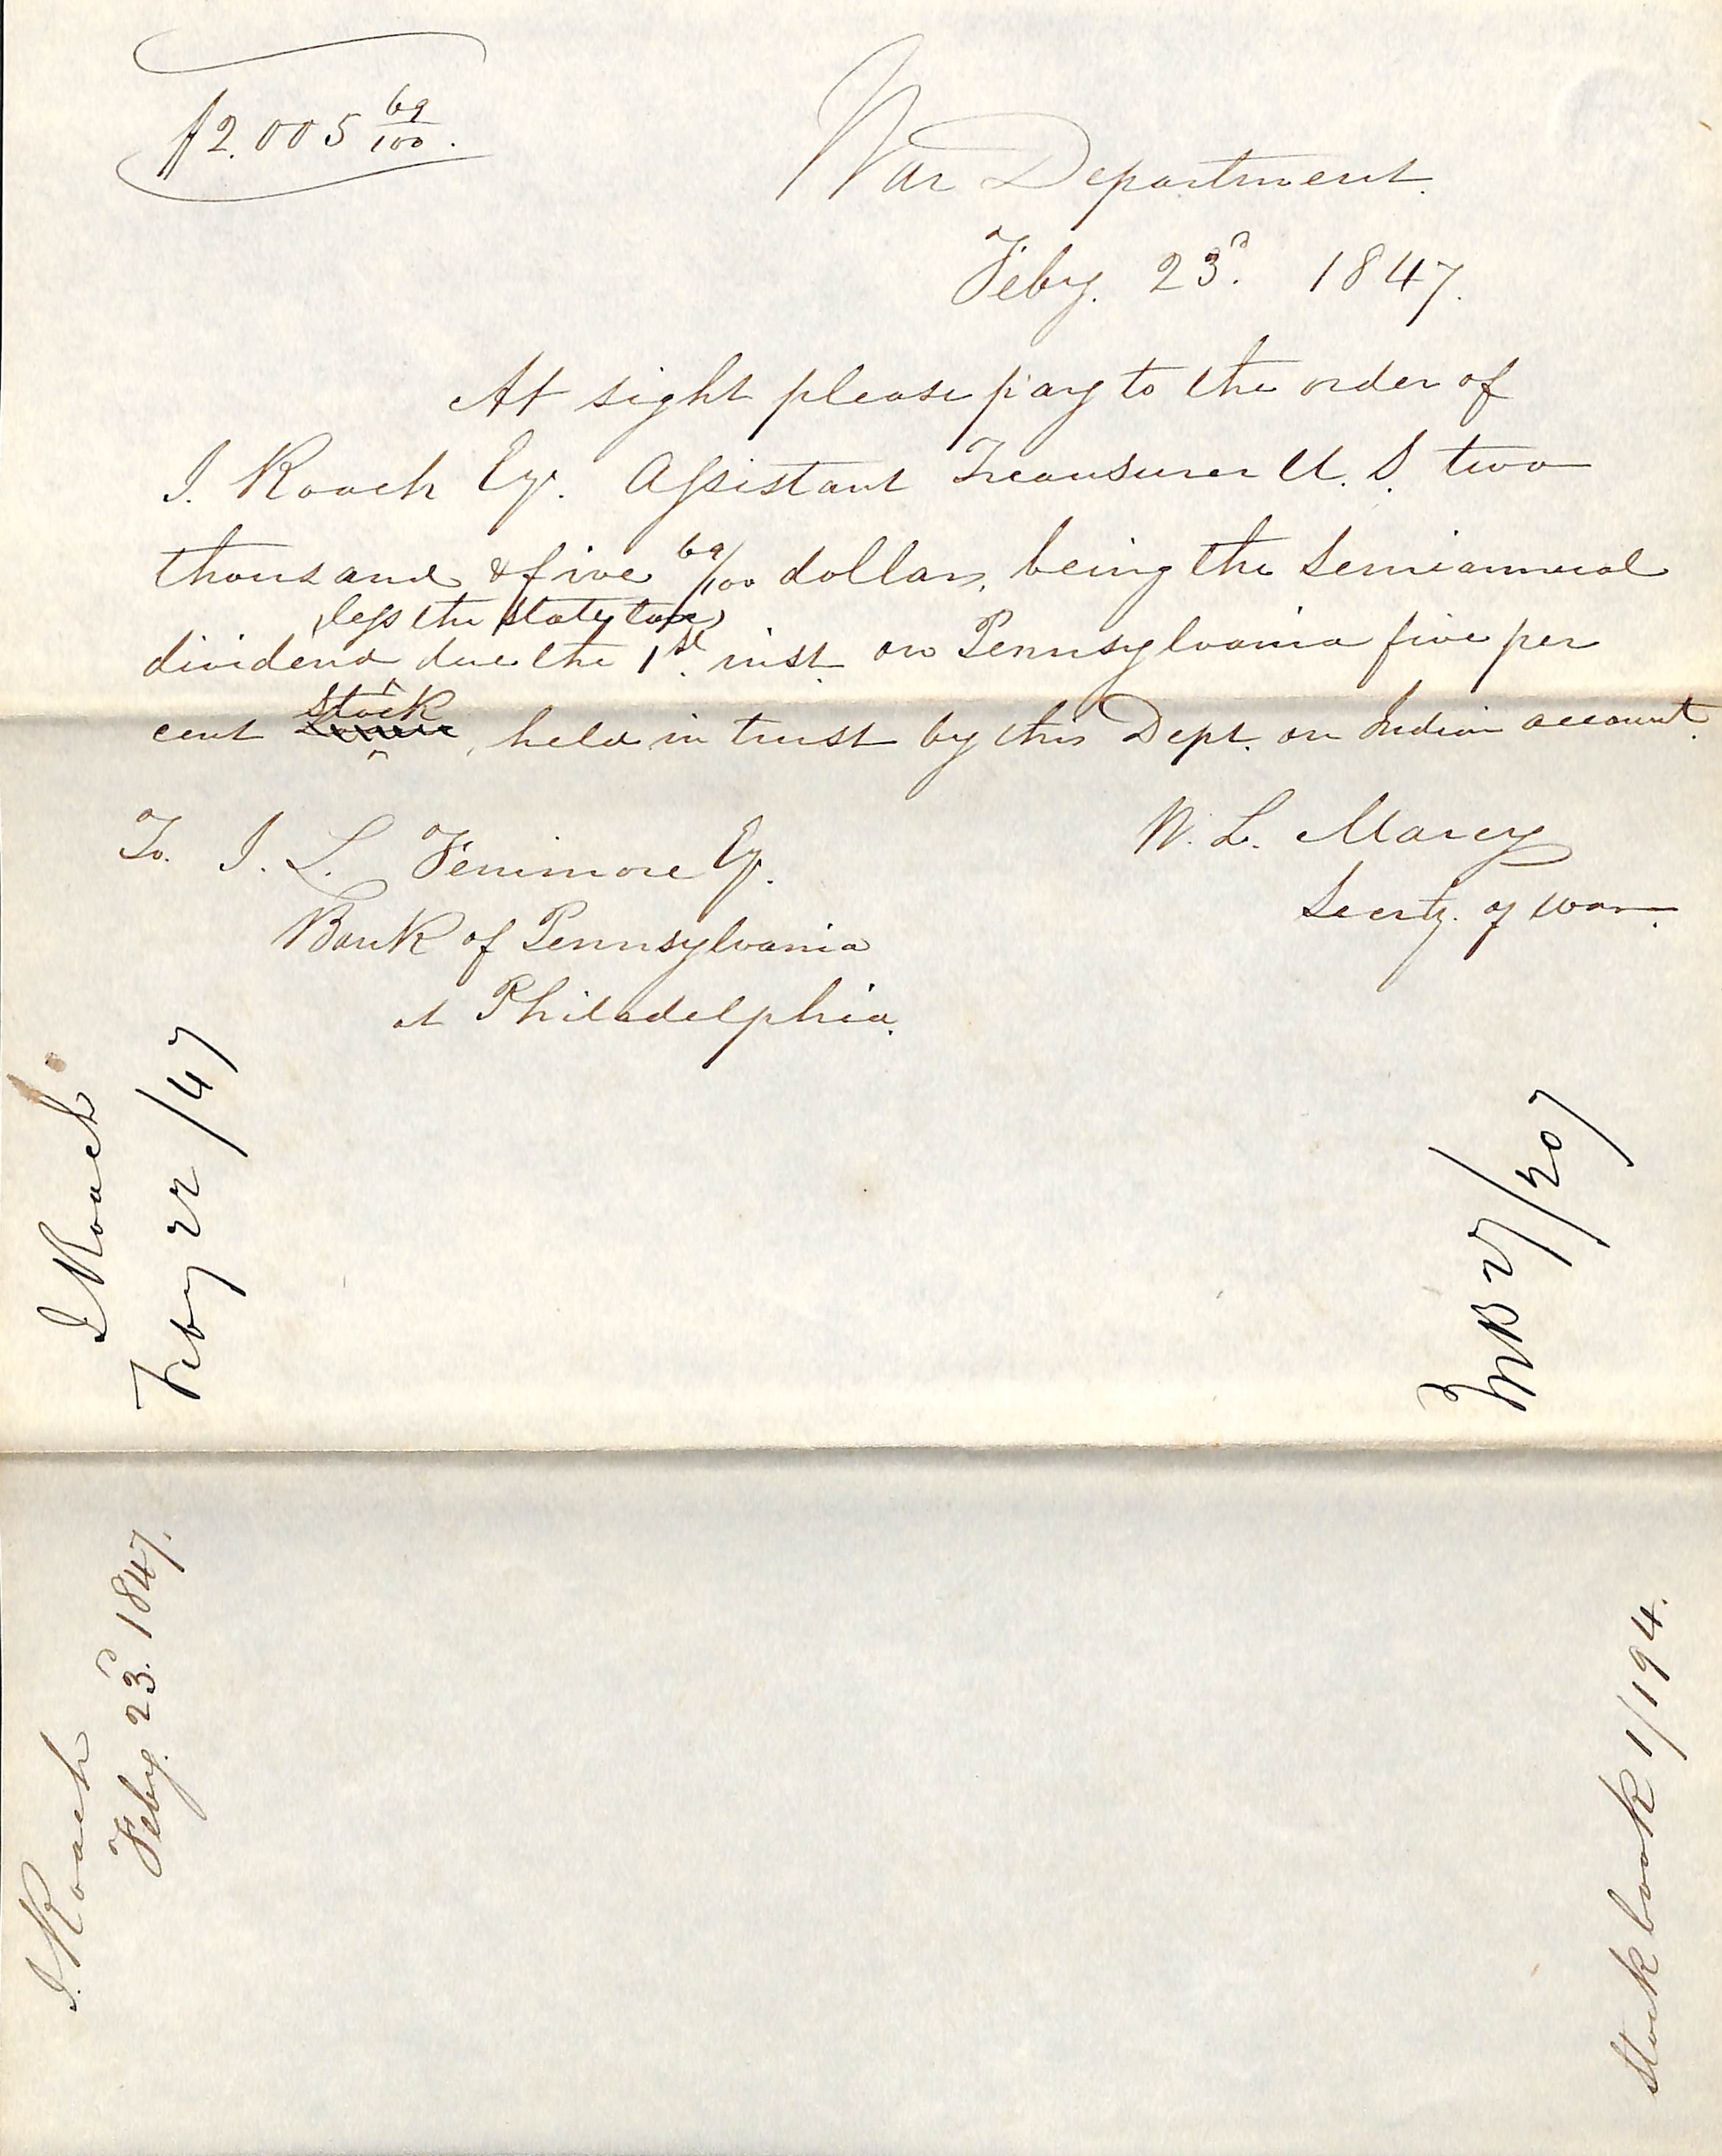 $2.005 69/100.
War Department.
Feby. 23d. 1847.
At sight please pay to the order of
I. Roach Esqr. Assistant Treausurer U. S. two
thousand & five 69/100 dollars, being the Semiannual
(less the state tax)
dividend due the 1st. inst. on Pennsylvania five per
stock
cent , held in trust by this Dept. on Indian account.
To. I. L. Fenimore Esqr.
W. L. Marcy
Secrty. of War.
Bank of Pennsylvania
at Philadelphia.
I Roach
Feby 22/47
27/207
I. Roach
Feby. 23d. 1847.
Stock book 1/194.